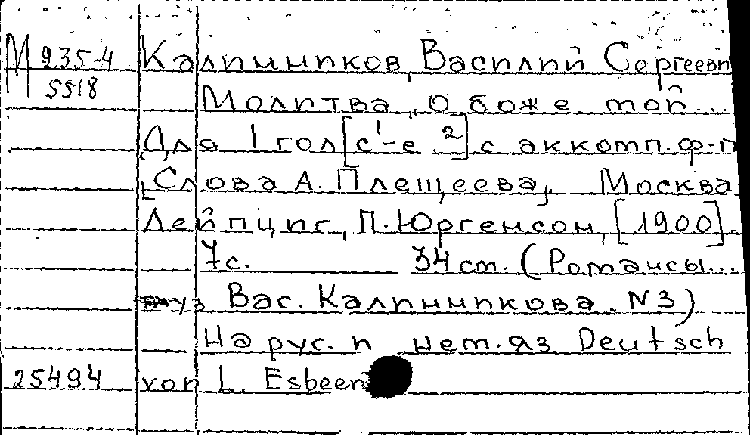 М 935-4 Калинников, Василий Сергеев
5518 Молитва „О боже мой...
Для 1 гол[с¹-е ²] с аккомп. ф-п
[Слова А. Плещеева]. Москва
Лейпциг, П. Юргенсон, [1900].
7с. 34 см. (Романсы...
муз Вас. Калинникова. N3)
На рус. и нем. яз Deutsch
25494 von L. Esbeer